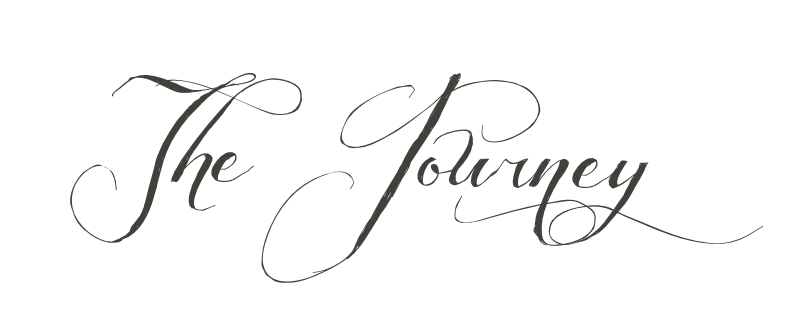 The Journey